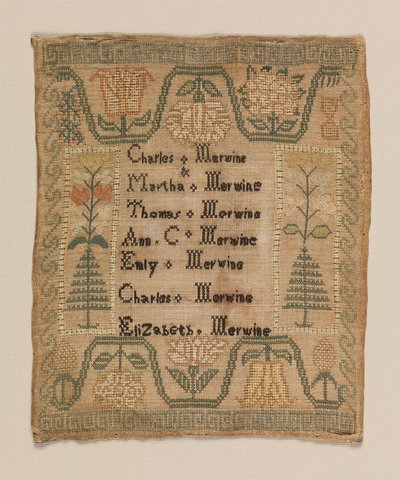 Charles Merwine
&
Martha Merwine
Thomas Morwine
Ann. C Merwine
Emly Merwine
Charles Merwine
ElizabetH Merwine